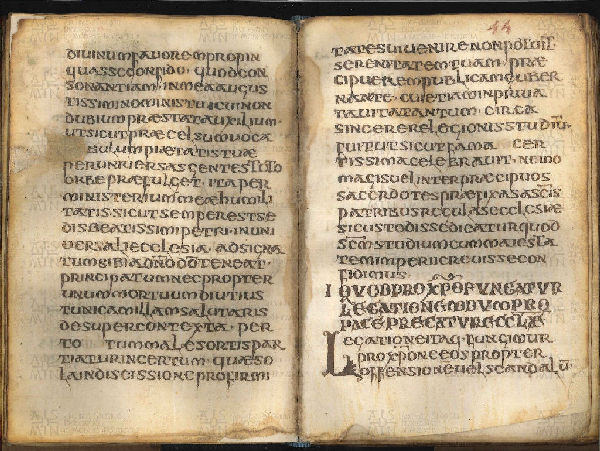 DIUINUMFAUOREMPROPIN
QUASSECONFIDO· QUODCON
SONANTIAM·INMEAAUGUS
TISSIMONOMINISTUICUINON
DUBIUMPRAESTATAUXILIUM·
UTSICUTPRAECELSUM
BULUMPIETATISTUAE
PERUNIUERSASGENTESTOTO
ORBEPRAEFULGET· ITAPER
MINISTERIUMMEAEHUMILI
TATIS·SICUTSEMPERESTSE
DISBEATISSIMIPETRI·INUNI
UERSALIECCLESIA·ADSIGNA
TUMSIBIADNODOTENEAT·
PRINCIPATUMNECPROPTER
UNUMMORTUUMDIUTIUS
TUNICAMILLAMSALUTARIS
DESUPERCONTEXTA· PER
TO TUMMALESORTISPAR
TIATURINCERTUM· QUAESO
LAINDISCISSIONEPROFIRMI
44
TATESUIUENIRENONPOTUIT
SERENITATEMTUAM· PRAE
CIPUEREMPUBLICAMGUBER
NANTE· CUIETIAMINPRIUA
TAUITATANTUM· CIRCA
SINCERERELEGIONISSTUDIŪ·
FUIT·UTSICUTFAMA CER
TISSIMACELEBRAUIT·NEMO
MAGISUELINTERPRAECIPUOS
SACERDOTESPRAEFIXASASCIS
PATRIBUSREGULASECCLESIAE
SICUSTODISSEDICATURQUOD
SCMSTUDIUMCUMMAIESTA
TEMIMPERIICREUISSECON
FIDIMUS·
I QUODPROXP̄OFUNGATUR
LEGATIONEMDUMPRO
PACEPRECATURECCLAE
LEGATIONEITAQ· FUNGIMUR
PROXP̄ONEEOSPROPTER
OFFENSIONEUELSCANDALŪ